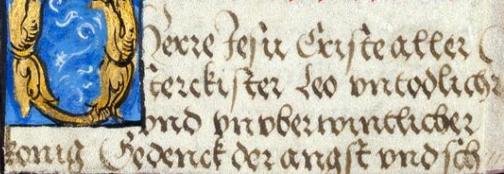 Herre Jesu Criste aller
sterckister Leo vntodlich
vnd vnvberwintlicher
konig Gedenck der angst vnd sch